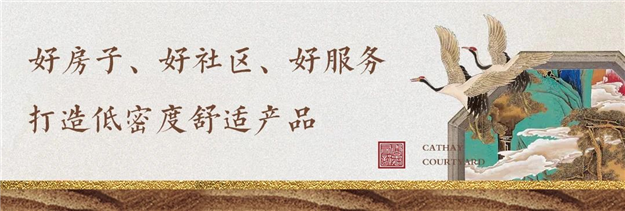 好房子、好社区、好服务
打造低密度舒适产品
CATHAY
COURTYARD